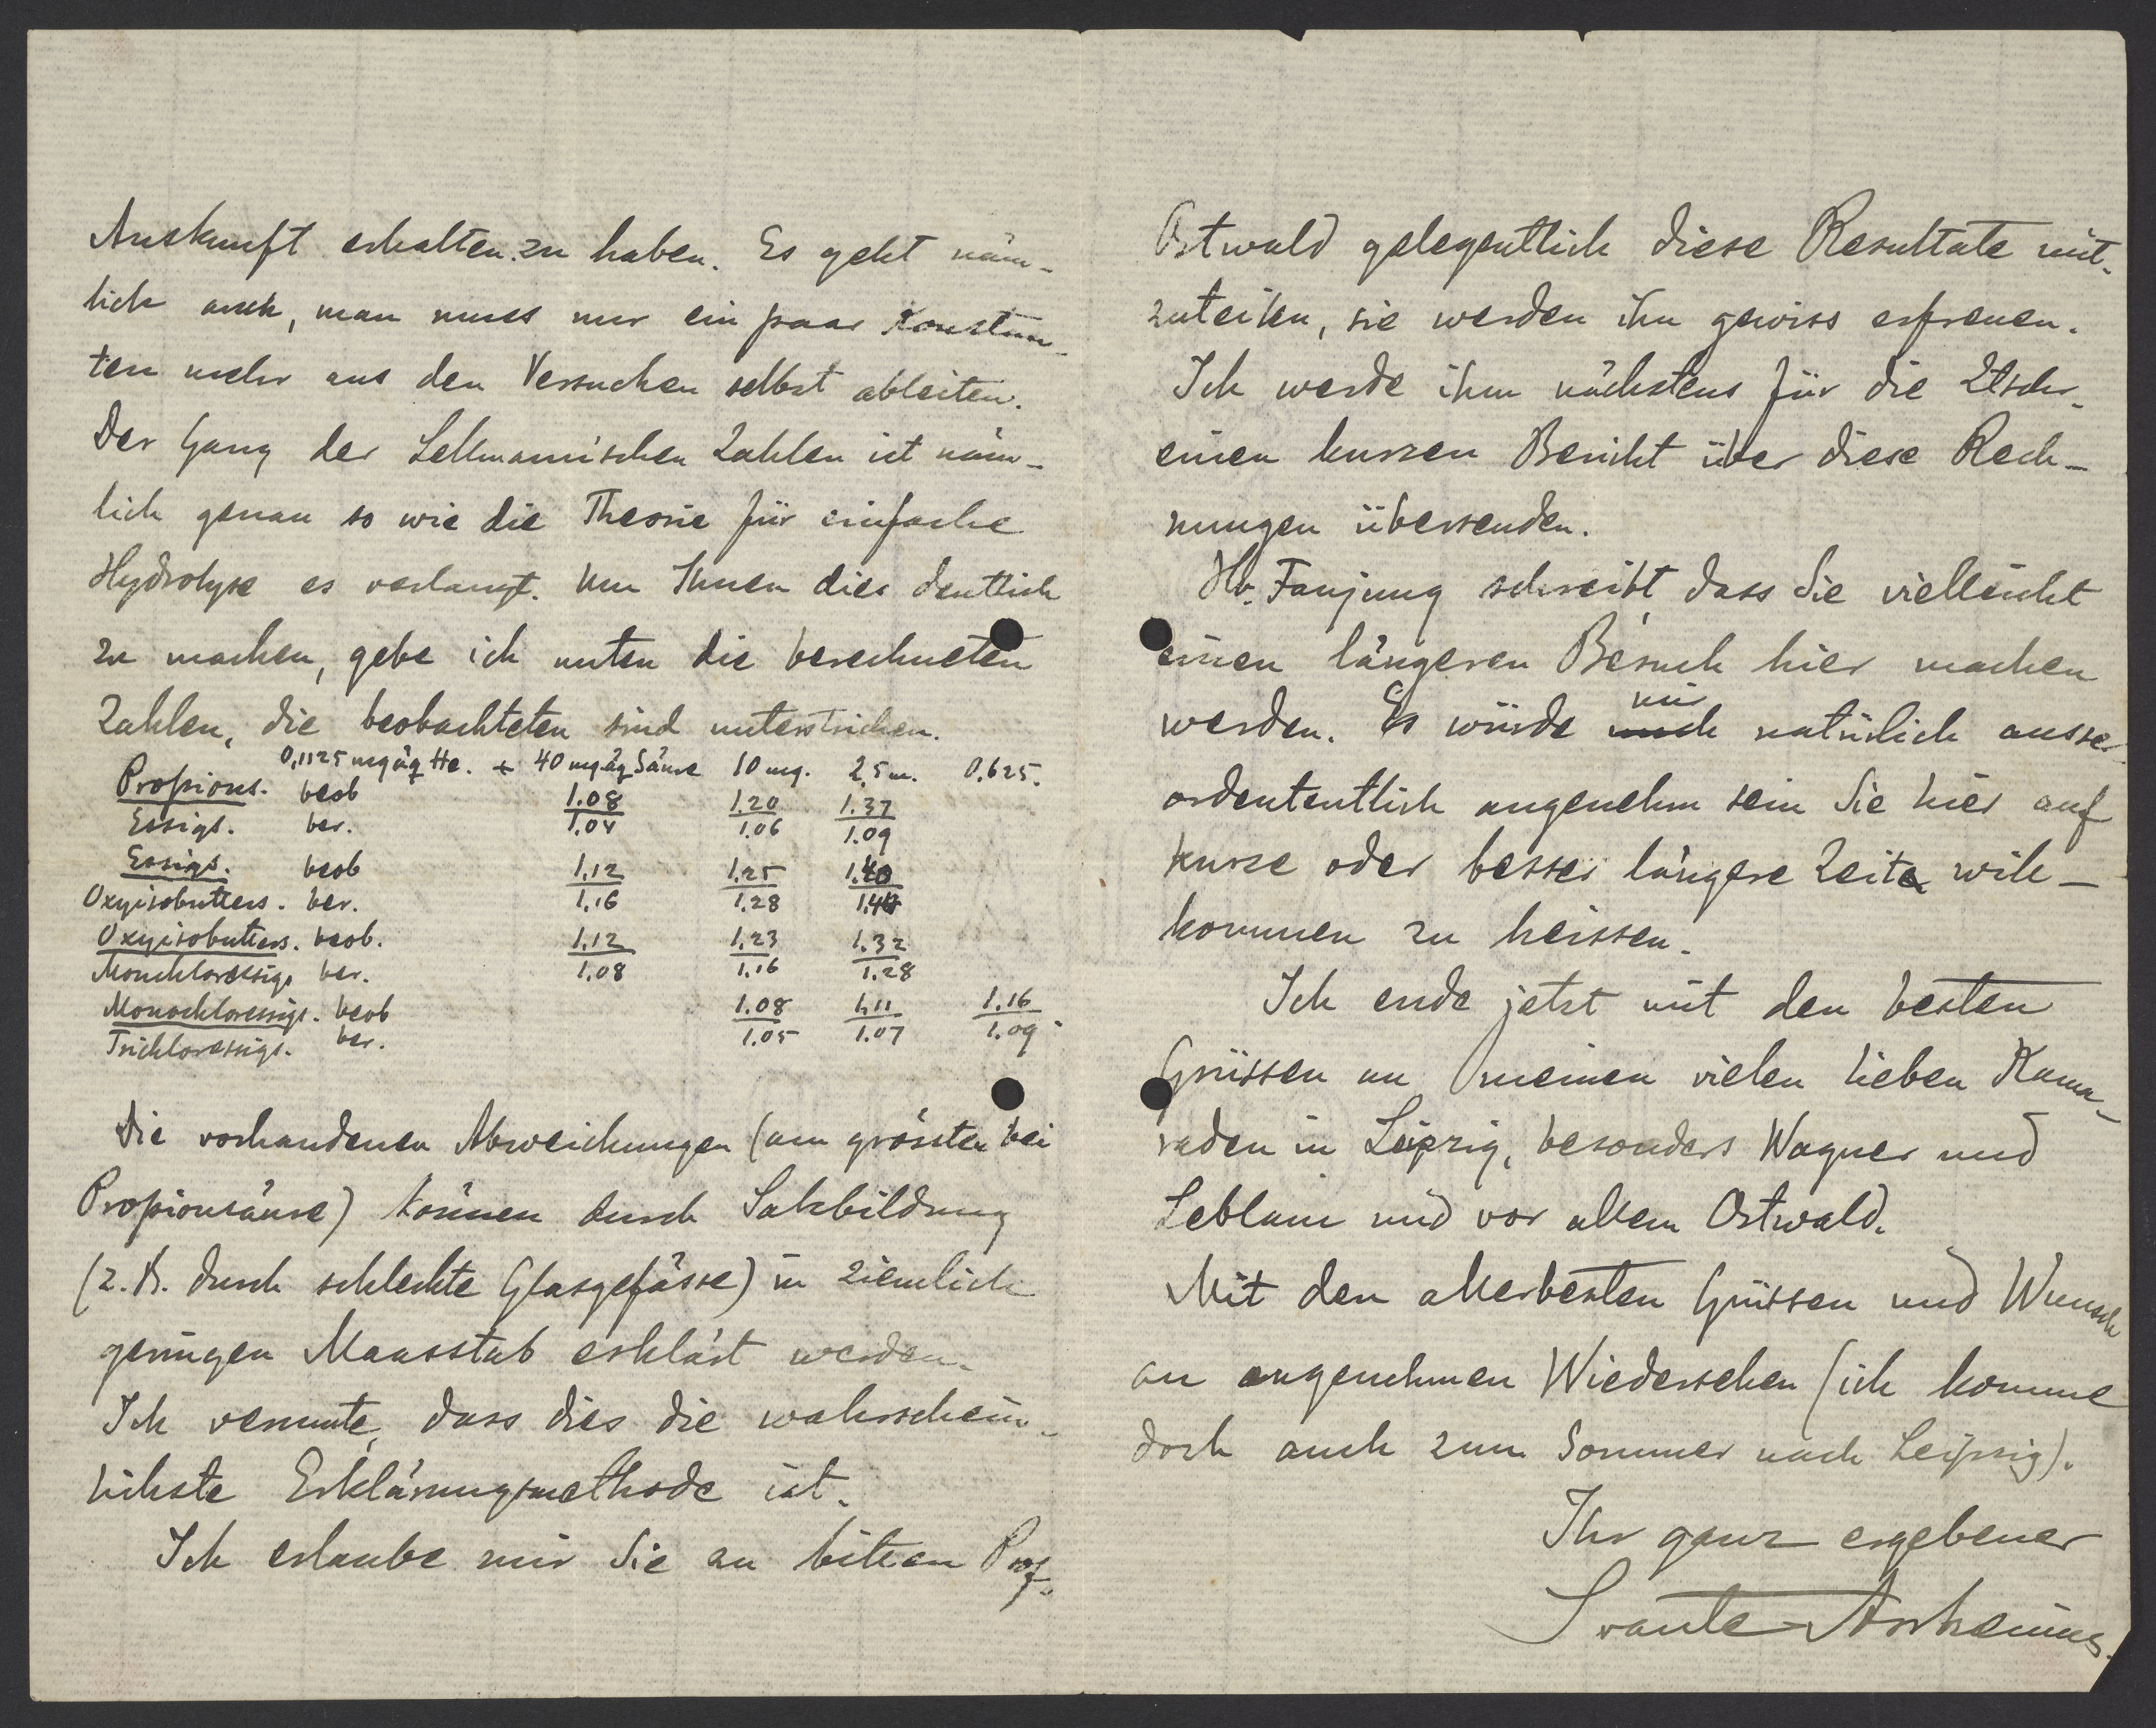 Auskunft erhalten zu haben. Es geht näm-
lich auch, man muss nur ein paar Konstan-
ten mehr aus den Versuchen selbst ableiten.
Der Gang der Lellmannischen Zahlen ist näm-
lich genau so wie die Theorie für einfache
Hydrolyse es verlangt. Um Ihnen dies deutlich
zu machen, gebe ich unten die berechneten
Zahlen, die beobachteten sind unterstrichen.
0,1125 mgäq He. + 40 mgäq Säure 10 mg. 2,5 m. 0.625.
Propions. beob 1.08 1.20 1.37
Essigs. ber. 1.04 1.06 1.09
Essigs. beob 1.12 1.25 1.40
Oxyisobutters. ber. 1.16 1.28 1.40
Oxyisobutters. beob. 1.12 1.23 1.32
Monchloressigs ber. 1.08 1.16 1.28
Monochloressigs. beob 1.08 1.11 1.16
Trichloressigs. ber. 1.05 1.07 1.09.
Die vorhandenen Abweichungen (am grössten bei
Propionsäure) können durch Salzbildung
(z.B. durch schlechte Glasgefässe) in ziemlich
geringen Maasstab erklärt werden.
Ich vermute, dass dies die wahrschein-
lichste Erklärungsmethode ist.
Ich erlaube mir Sie an bitten Prof.
Ostwald gelegentlich diese Resultate mit-
zuteilen, sie werden ihn gewiss erfreuen.
Ich werde ihm nächstens für die Ztschr.
einen kurzen Bericht über diese Rech-
nungen übersenden.
Hr. Fanjung schreibt, dass Sie vielleicht
einen längeren Besuch hier machen
werden. Es würde mir natürlich ausser
ordententlich angenehm sein Sie hier auf
kurze oder besser längere Zeit will-
kommen zu heissen.
Ich ende jetzt mit den besten
Grüssen an meinen vielen lieben Kama-
raden in Leipzig, besonders Wagner und
Leblanc und vor allem Ostwald.
Mit den allerbesten Grüssen und Wunsch
an angenehmen Wiedersehen (ich komme
doch auch zum Sommer nach Leipzig).
Ihr ganz ergebener
Svante Arrhenius.